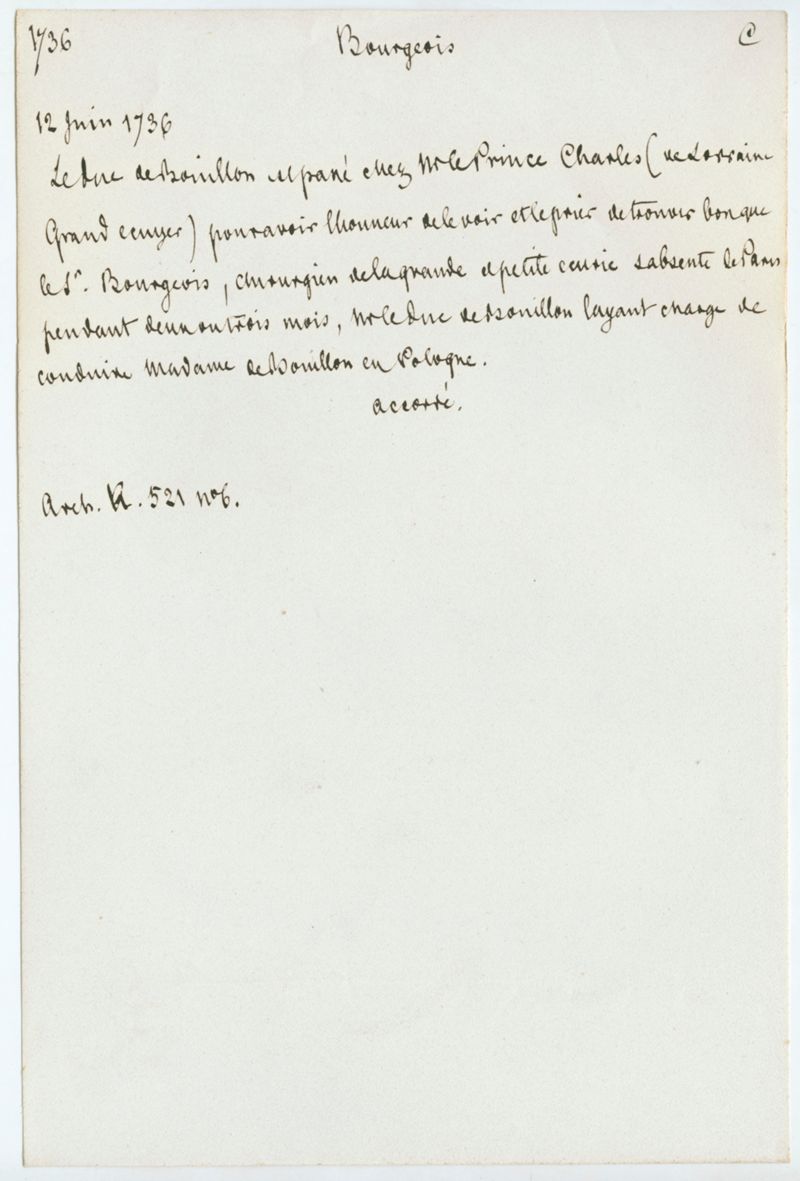 1736 Bourgeois C
12 Juin 1736
Le Duc de Bouillon est passé chez Mr le Prince Charles (de Lorraine
Grand ecuyer) pour avoir lhonneur de le voir et le prier de trouver bon que
le Sr. Bourgeois, chirurgien de la grande et petite ecurie sabsente de Paris
pendant deux ou trois mois, Mr le Duc de Bouillon layant chargé de
conduire Madame de Bouillon en Pologne.
accordé.
Arch. R. 521 no 6.